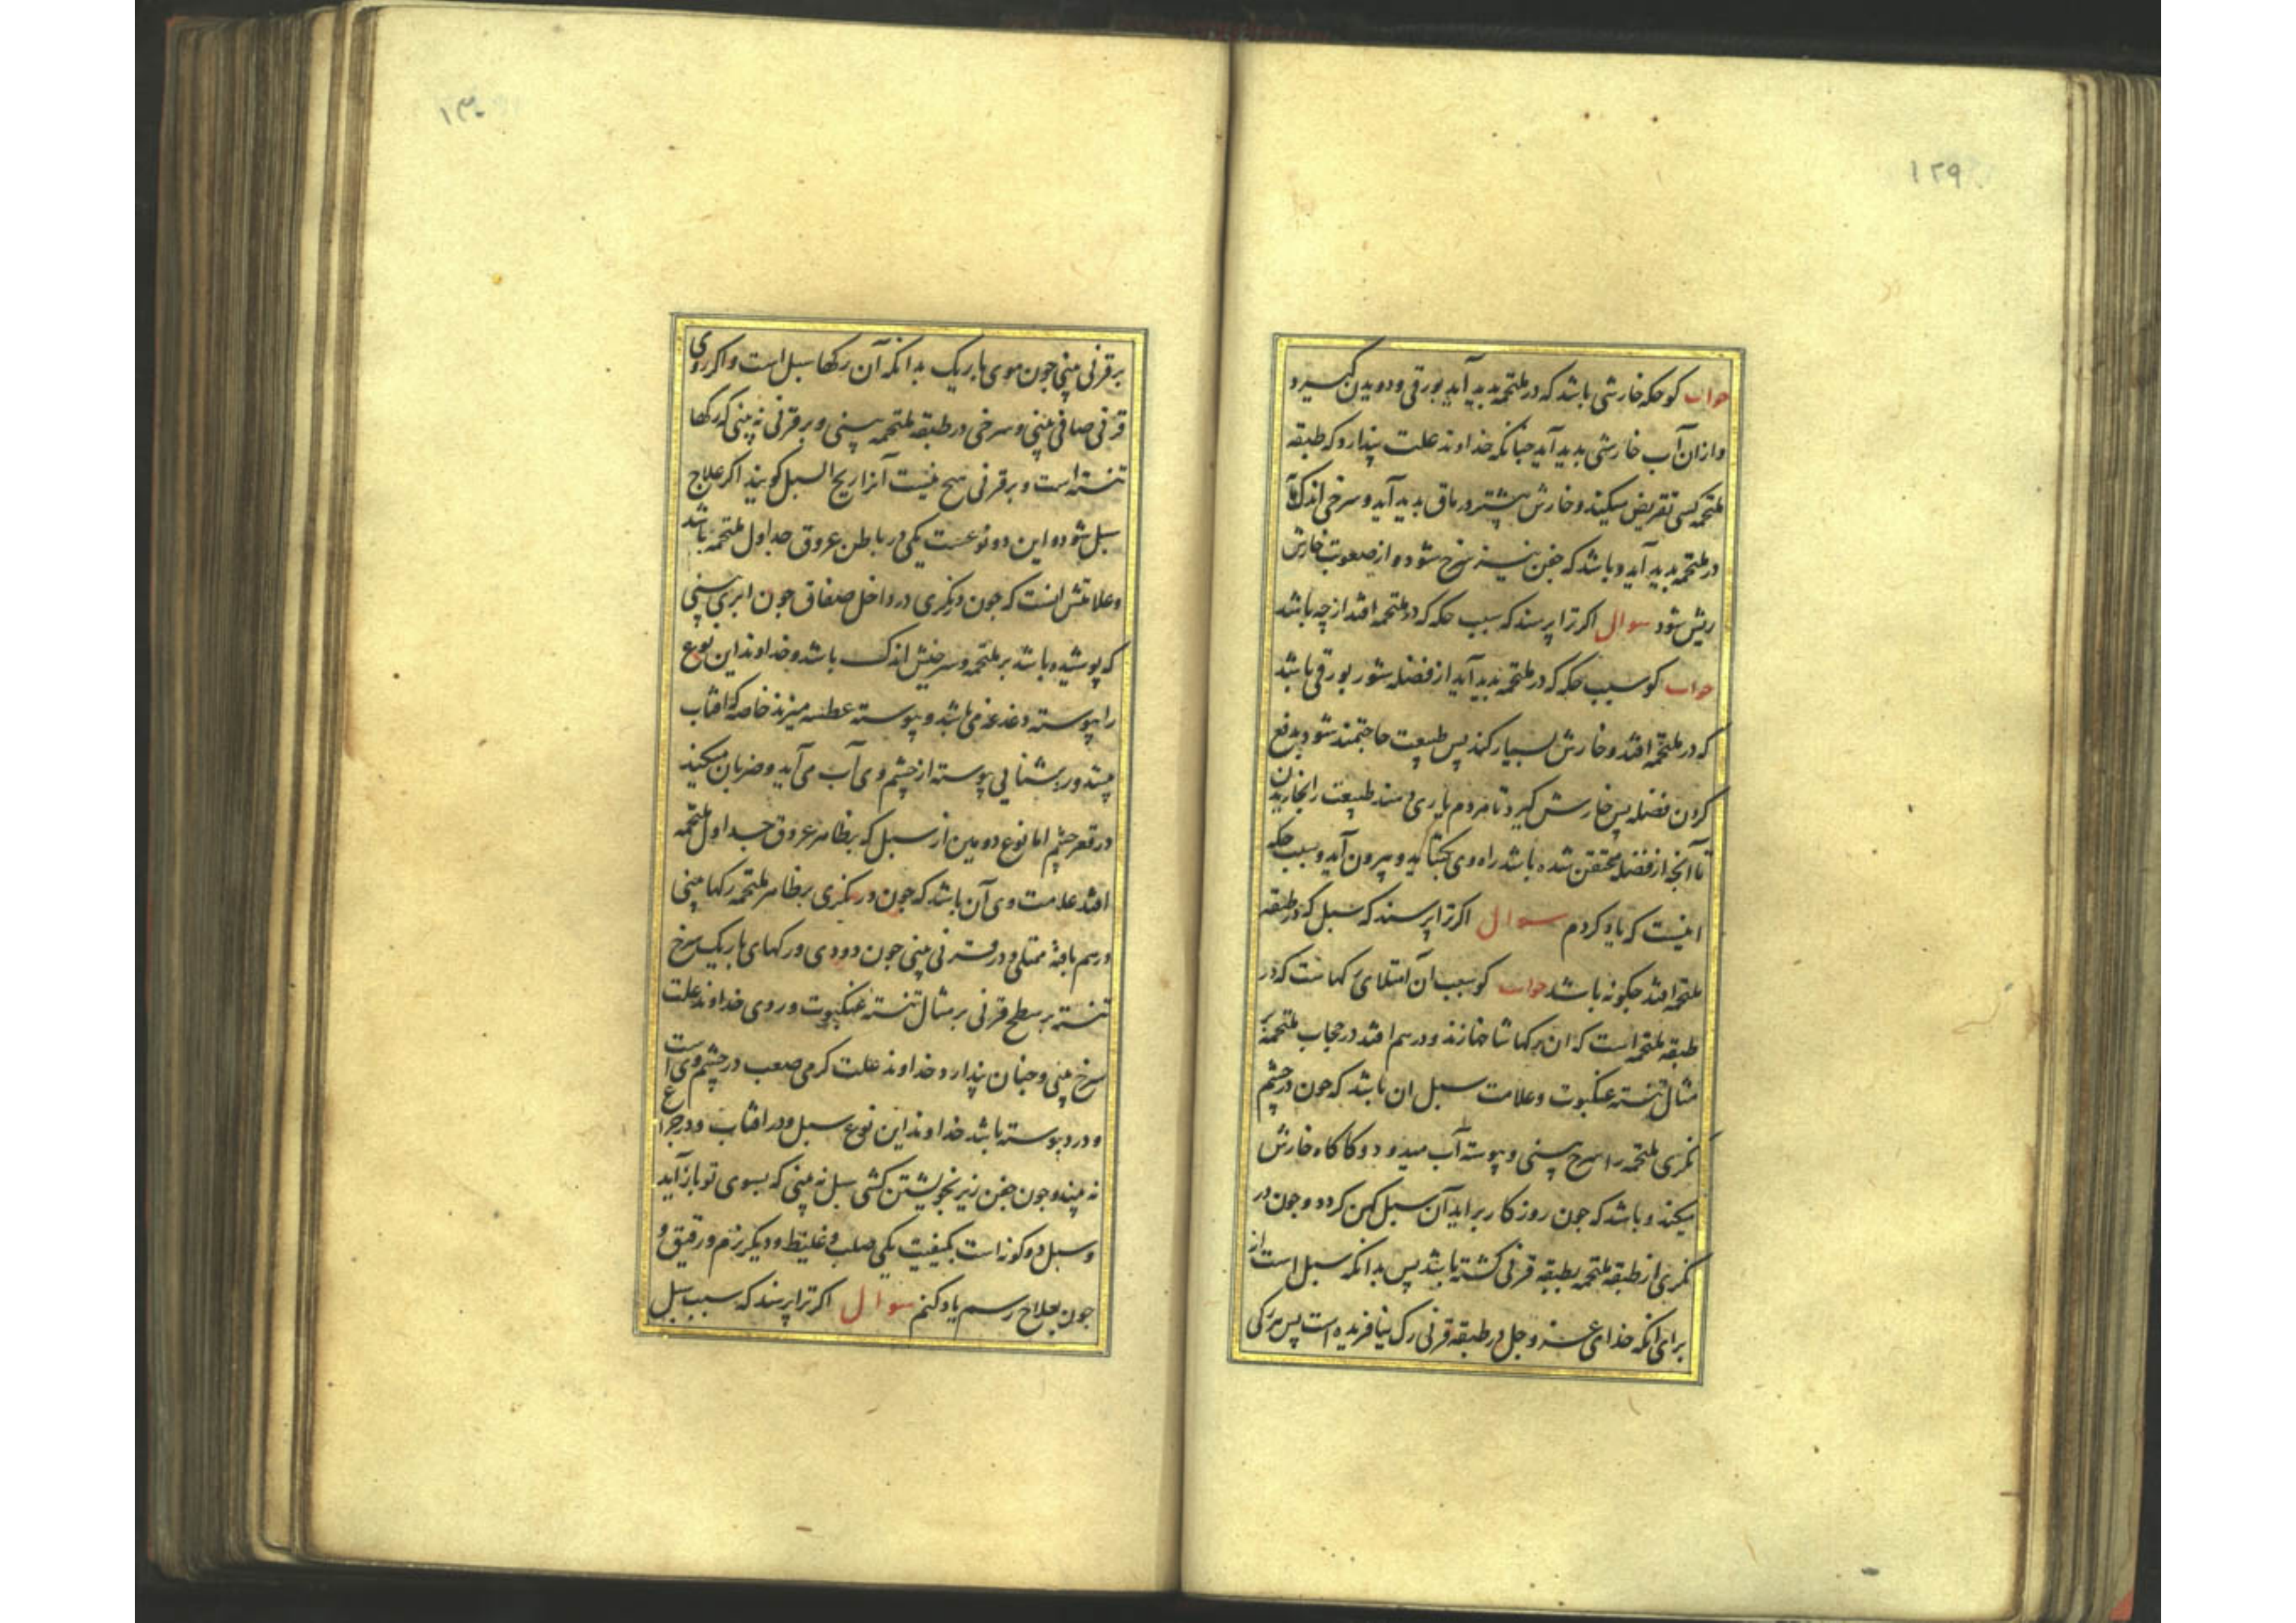 ۱۲۹
جواب کو حکه خارشی باشد که در ملتحمه بدید آید بورقی و دویدن کیرد
و ازان آب خارشی بدید آید جنانکه خداوند علت پندارد که طبقه
ملتحمه کسی تقریض میکند و خارش بیشتر در ماق بدید آید و سرخی اندک
در ملتحمه بدید آید و باشد که جفن نیز سرخ شود و از صعوبت خارش
ریش شود سوال اکر ترا پرسند که سبب حکه که در ملتحمه افتد از چه باشد
جواب کو سبب حکه که در ملتحمه بدید آید از فضله شور بورقی باشد
که در ملتحمه افتد و خارش بسیار کند پس طبیعت حاجتمند شود بدفع
کردن فضله پس خارش کیرد تا مردم یاری دهند طبیعت را بخاریدن
تا آنجه از فضله محتقن شده باشد راه وی بکشاید و بیرون آید و سبب حکه
اینست که یاد کردم سوال اکر ترا پرسند که سبل که در طبقه
ملتحمه افتد جکونه باشد جواب کو سبب آن امتلای رکهاست که در
طبقه ملتحمه است که ان رکها شاخها زند و درهم افتد در حجاب ملتحمه بر
مثال تنسته عنکبوت و علامت سبل ان باشد که جون در چشم
نکری ملتحمه را سرخ بینی و پیوسته آب میدود و کاه کاه خارش
میکند و باشد که جون روزکار براید آن سبل کهن کردد و جون در
نکری از طبقه ملتحمه بطبقه قرنی کشته باشد پس بدانکه سبل است از
برای انکه خدای عز و جل در طبقه قرنی رک نیافریده است پس هر رکی
۱۳۰
بر قرنی بینی جون موی باریک بدانکه آن رکها سبل است و اکر روی
قرنی صافی بینی و سرخی در طبقه ملتحمه بینی و بر قرنی نه بینی که رکها
تنسته است و بر قرنی هیح نیست آنرا ریح السبل کویند اکر علاج
سبل شود و این دو نوعست یکی در باطن عروق جداول ملتحمه باشد
و علامتش انست که جون دیکری در داخل صفاق جون ابری بینی
که پوشیده باشد بر ملتحمه و سرخیش اندک باشد و خداوند این نوع
را پیوسته دغدغه می باشد و پیوسته عطسه میزند خاصه که افتاب
بیند و در روشنایی پیوسته از چشم وی آب می آید و ضربان میکند
در قعر چشم اما نوع دومین از سبل که بظاهر عروق جداول ملتحمه
افتد علامت وی آن باشد که جون در نکری بر ظاهر ملتحمه رکها بینی
درهم بافته ممتلی و در قرنی بینی جون دودی و رکهای باریک سرخ
تنسته بر سطح قرنی بر مثال تنسته عنکبوت و روی خداوند علت
سرخ بینی و جنان پندارد خداوند علت کرمی صعب در چشم وی است
و درد پیوسته باشد خداوند این نوع سبل و در افتاب و در جراغ
نه بیند و جون جفن زیر بخویشتن کشی سبل نه بینی که بسوی تو باز آید
و سبل دو کونه است بکیفیت یکی صلب و غلیظ و دیکر نرم و رقیق و
جون بعلاج رسم یاد کنم سوال اکر ترا پرسند که سبب سبل